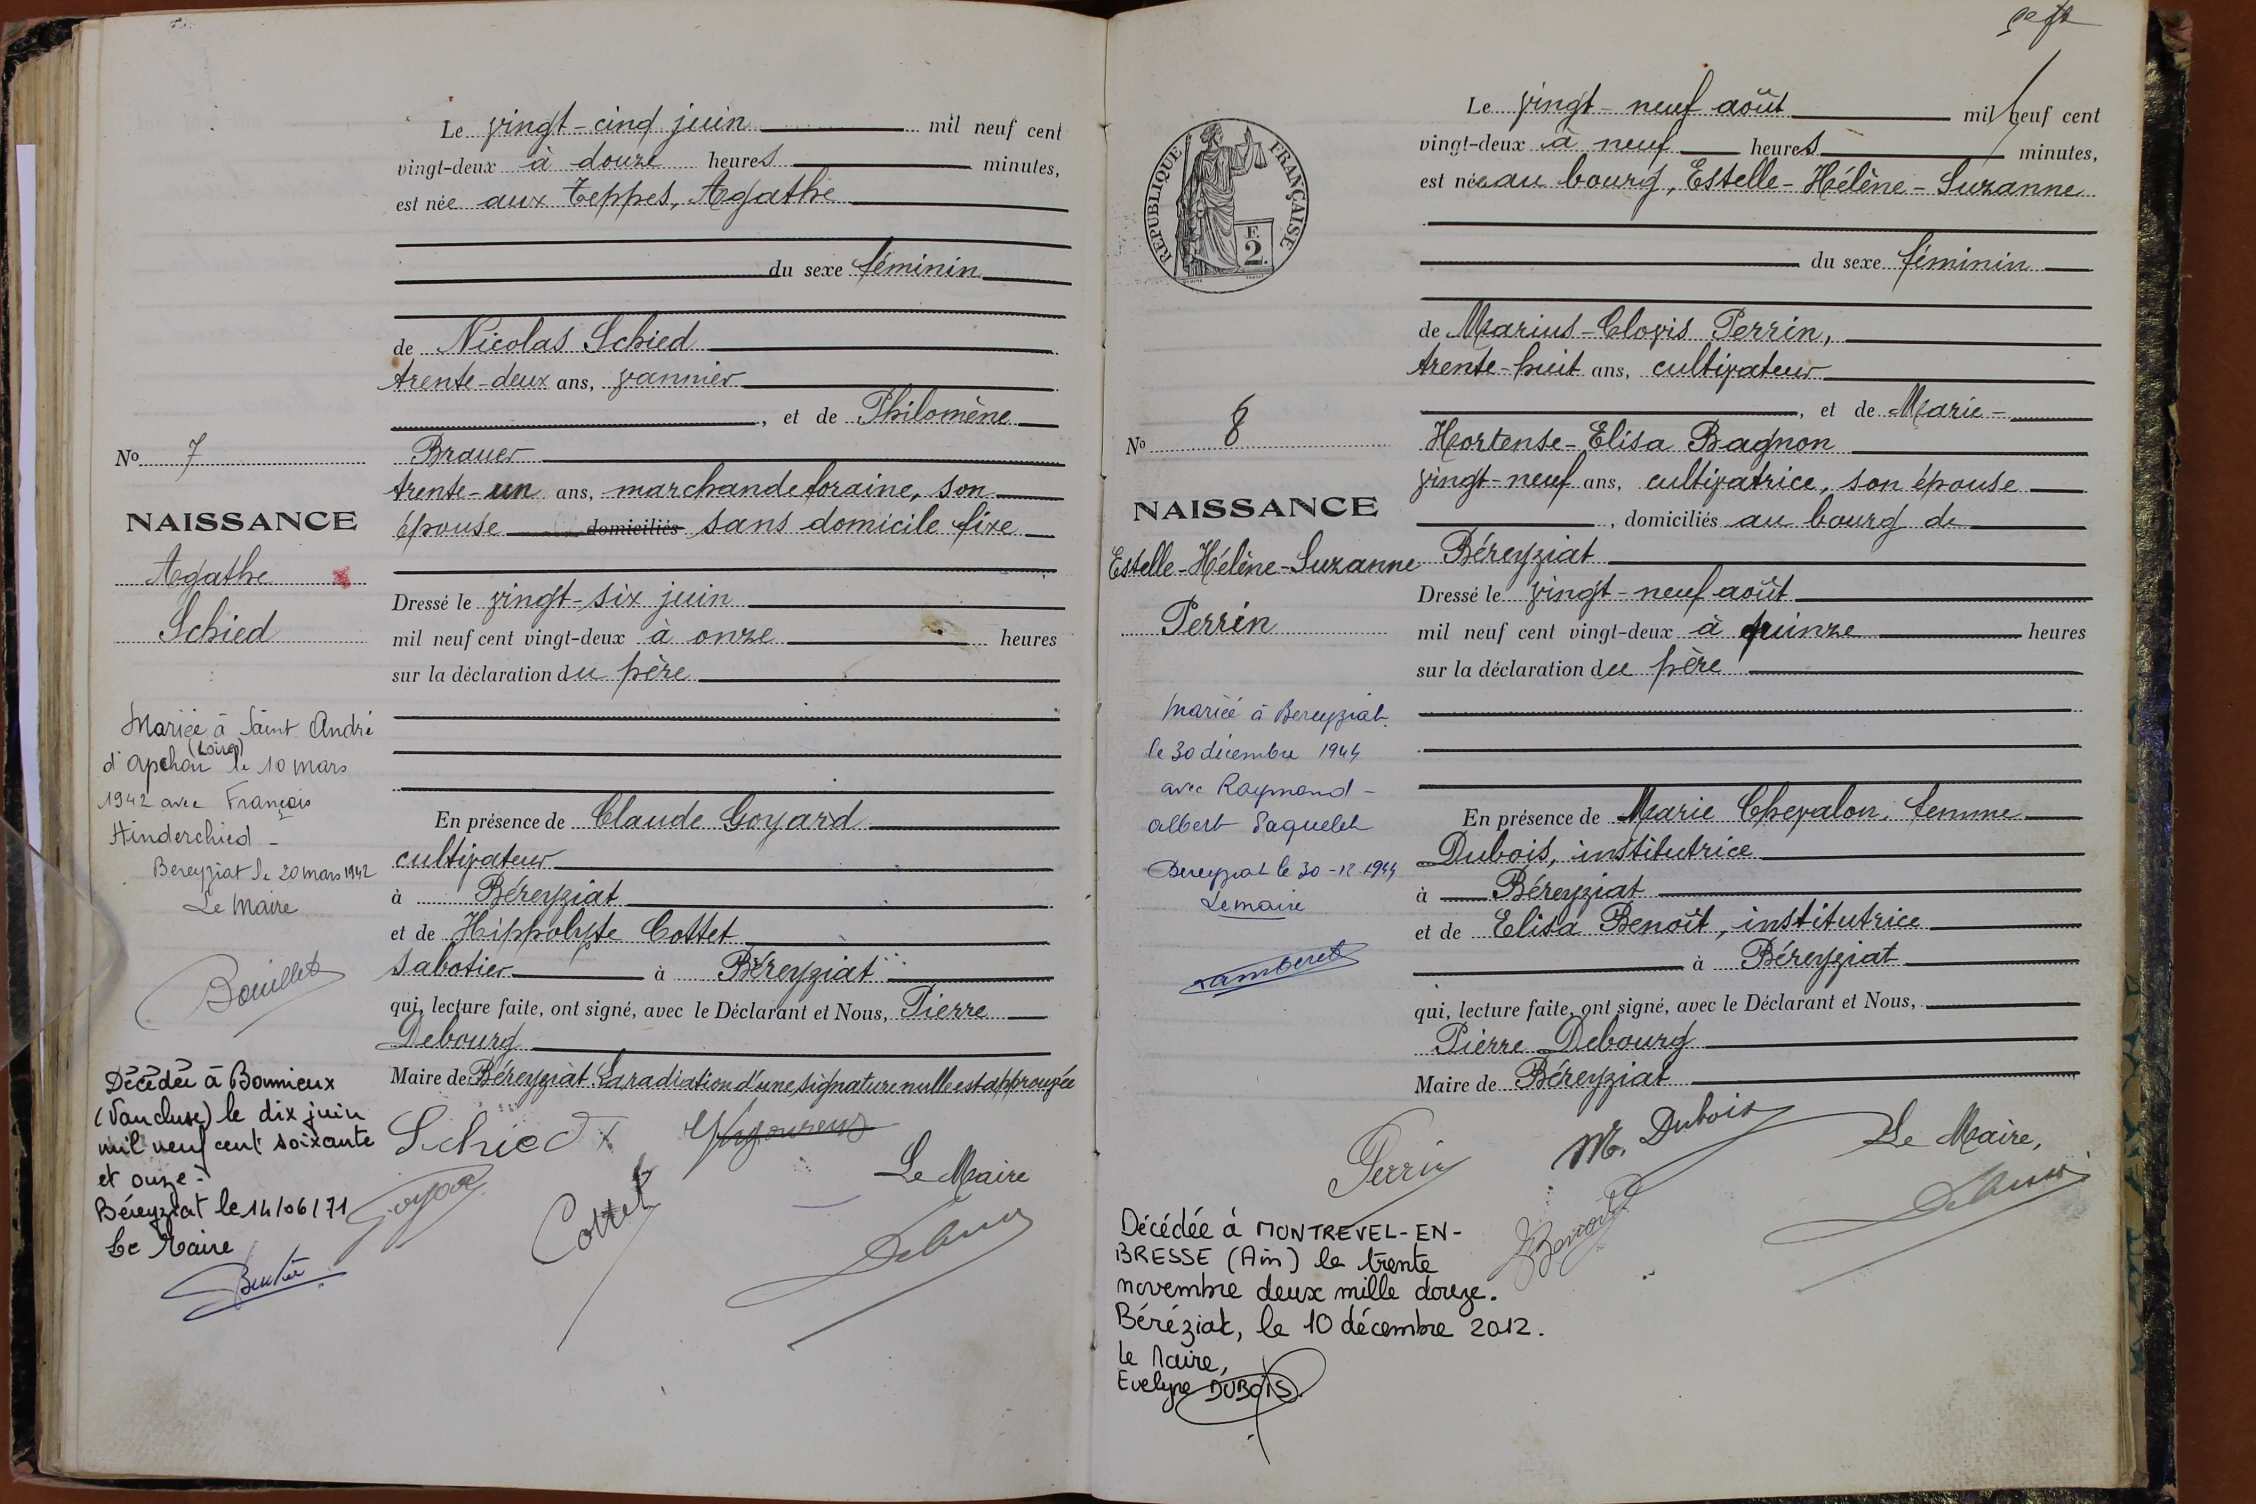 Le vingt-cinq juin mil neuf cent
vingt-deux à douze heures minutes,
est née aux Teppes, Agathe
du sexe féminin
de Nicolas Schied
trente-deux ans, vannier
, et de Philomène
Brauer
trente-un ans, marchande foraine, son
épouse domiciliés sans domicile fixe
Dressé le vingt-six juin
mil neuf cent vingt-deux à onze heures
sur la déclaration du père
En présence de Claude Goyard
cultivateur
à Béreyziat
et de Hippolyte Cottet
sabotier à Béreyziat
qui, lecture faite, ont signé, avec le Déclarant et Nous, Pierre
Debourg
Maire de Béreyziat. La radiation d'une signature nulle est approuvée
Schied
Goyard
Cottet
Le Maire
No 7
NAISSANCE
Agathe
Schied
Mariée à Saint André
(Loire)
d'Apchon le 10 mars
1942 avec François
Hinderchied -
Bereyziat le 20 mars 1942
Le Maire
Bouillet
Décédée à Bonnieux
(Vaucluse) le dix juin
mil neuf cent soixante
et onze -
Béreyziat le 14/06/71
Le Maire
sept
Le vingt-neuf août mil neuf cent
vingt-deux à neuf heures minutes,
est née au bourg, Estelle-Hélène-Suzanne
du sexe féminin
de Marius-Clovis Perrin,
trente-huit ans, cultivateur
, et de Marie-
Hortense-Elisa Bagnon
vingt-neuf ans, cultivatrice, son épouse
, domiciliés au bourg de
Béreyziat
Dressé le vingt-neuf août
mil neuf cent vingt-deux à quinze heures
sur la déclaration du père
En présence de Marie Chevalon, femme
Dubois, institutrice
à Béreyziat
et de Elisa Benoît, institutrice
à Béreyziat
qui, lecture faite, ont signé, avec le Déclarant et Nous,
Pierre Debourg
Maire de Béreyziat
Perrin
M. Dubois
Benoit
Le Maire,
RÉPUBLIQUE FRANÇAISE
E
2.
No 8
NAISSANCE
Estelle-Hélène-Suzanne
Perrin
Mariée à Bereyziat
le 30 décembre 1944
avec Raymond -
Albert Paquelet
Bereyziat le 30-12-1944
Le maire
Lamberet
Décédée à MONTREVEL-EN-
BRESSE (Ain) le trente
novembre deux mille douze.
Béréziat, le 10 décembre 2012.
Le Maire,
Evelyne DUBOIS.